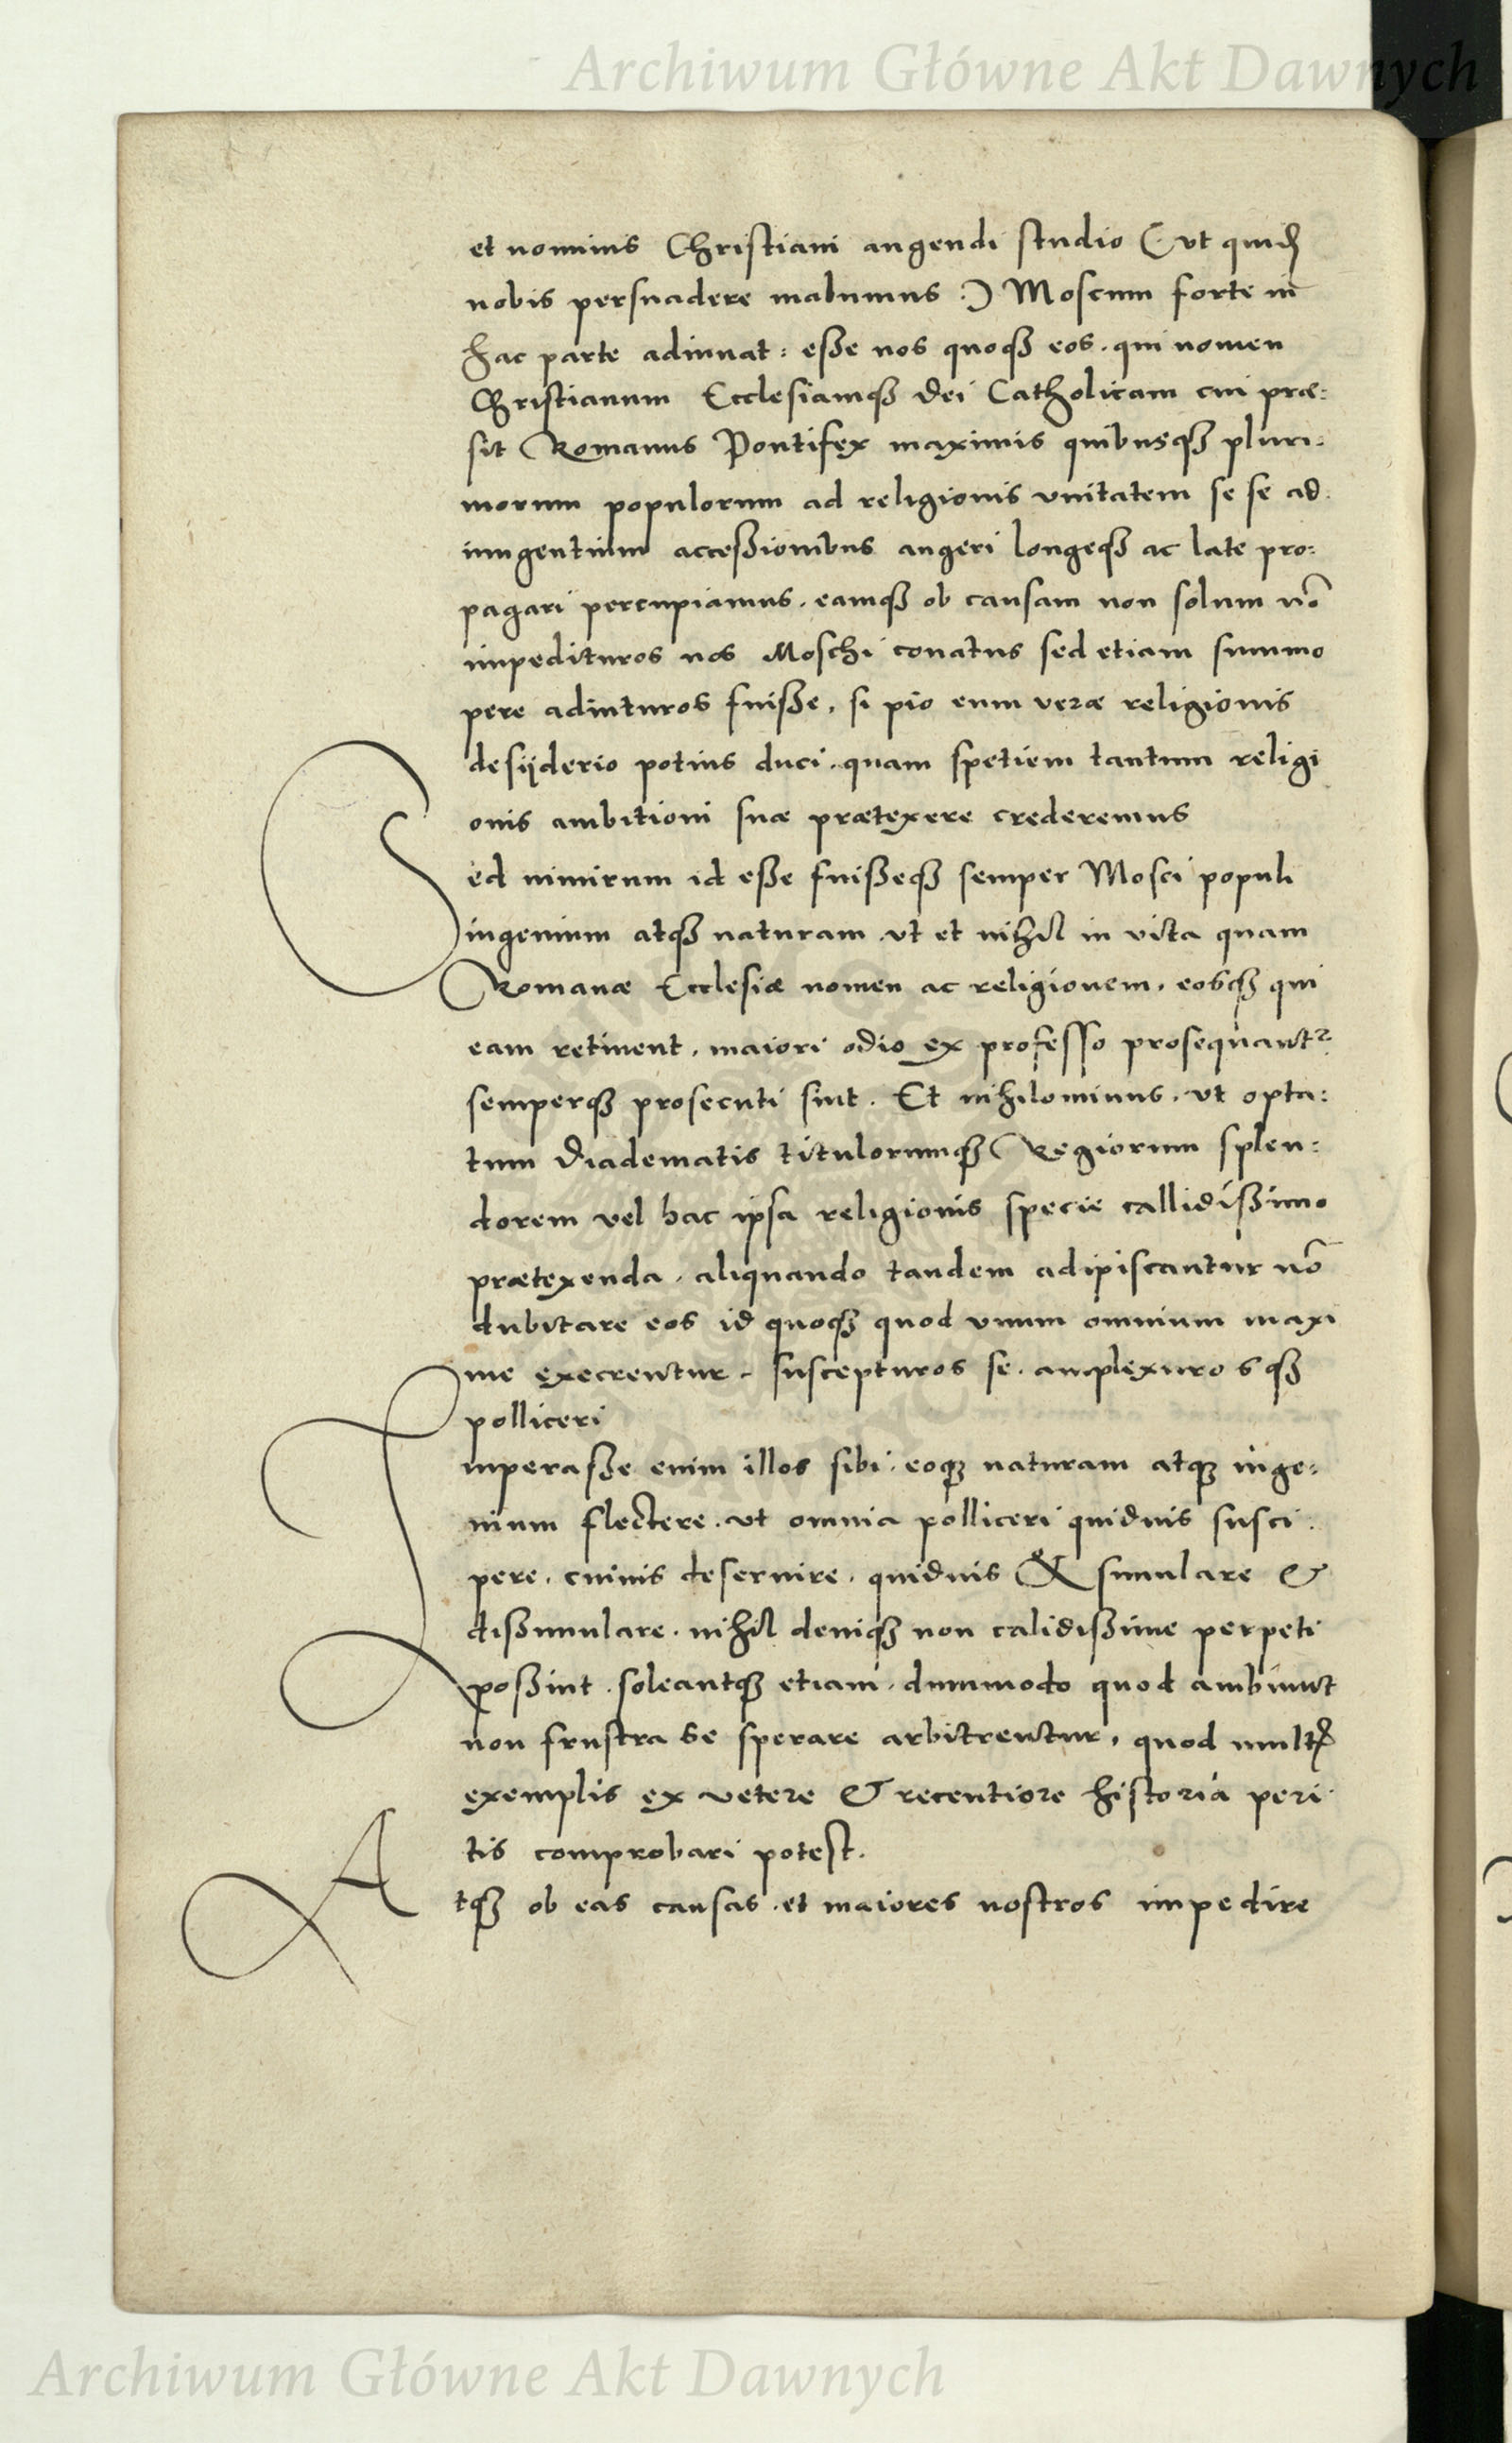 Archiwum Główne Akt Dawnych
et nominis Christiani augendi studio (: vt quidē
nobis persuadere malumus :) Moscum forte in
hac parte adiuuat: eße nos quoqȝ eos. qui nomen
Christianum Ecclesiamqȝ dei Catholicam cui præ:
sit Romanus Pontifex maximis quibusqȝ pluri:
morum populorum ad religionis vnitatem se se ad:
iungentium acceßionibus augeri longeqȝ ac late pro:
pagari percupiamus. eamqȝ ob causam non solum nō
impedituros nos Moschi conatus sed etiam summo
pere adiuturos fuiße, si pio eum veræ religionis
desijderio potius duci. quam spetiem tantum religi
onis ambitioni suæ prætexere crederemus
Sed nimirum id eße fuißeqȝ semper Mosci populi
ingenium atqȝ naturam. vt et nihil in vita quam
Romanæ Ecclesiæ nomen ac religionem, eosqȝ qui
eam retinent, maiori odio ex professo prosequantr
semperqȝ prosecuti sint. Et nihilominus. vt opta:
tum diadematis titulorumqȝ Regiorum splen:
dorem vel hac ipsa religionis specie callidißimo
prætexenda. aliquando tandem adipiscantur nō
dubitare eos id quoqȝ quod vnum omnium maxi
me execrentur. suscepturos se. amplexurosqȝ
polliceri
Imperaße enim illos sibi. eoqȝ naturam atqȝ inge:
nium flectere. vt omnia polliceri quiduis susci:
pere. cuiuis deseruire. quiduis & simulare &
dißimulare. nihil deniqȝ non calidißime perpeti
poßint. soleantqȝ etiam. dummodo quod ambiunt
non frustra se sperare arbitrentur, quod multꝭ
exemplis ex vetere & recentiore historia peri:
tis comprobari potest.
Atqȝ ob eas causas. et maiores nostros impedire
Archiwum Główne Akt Dawnych